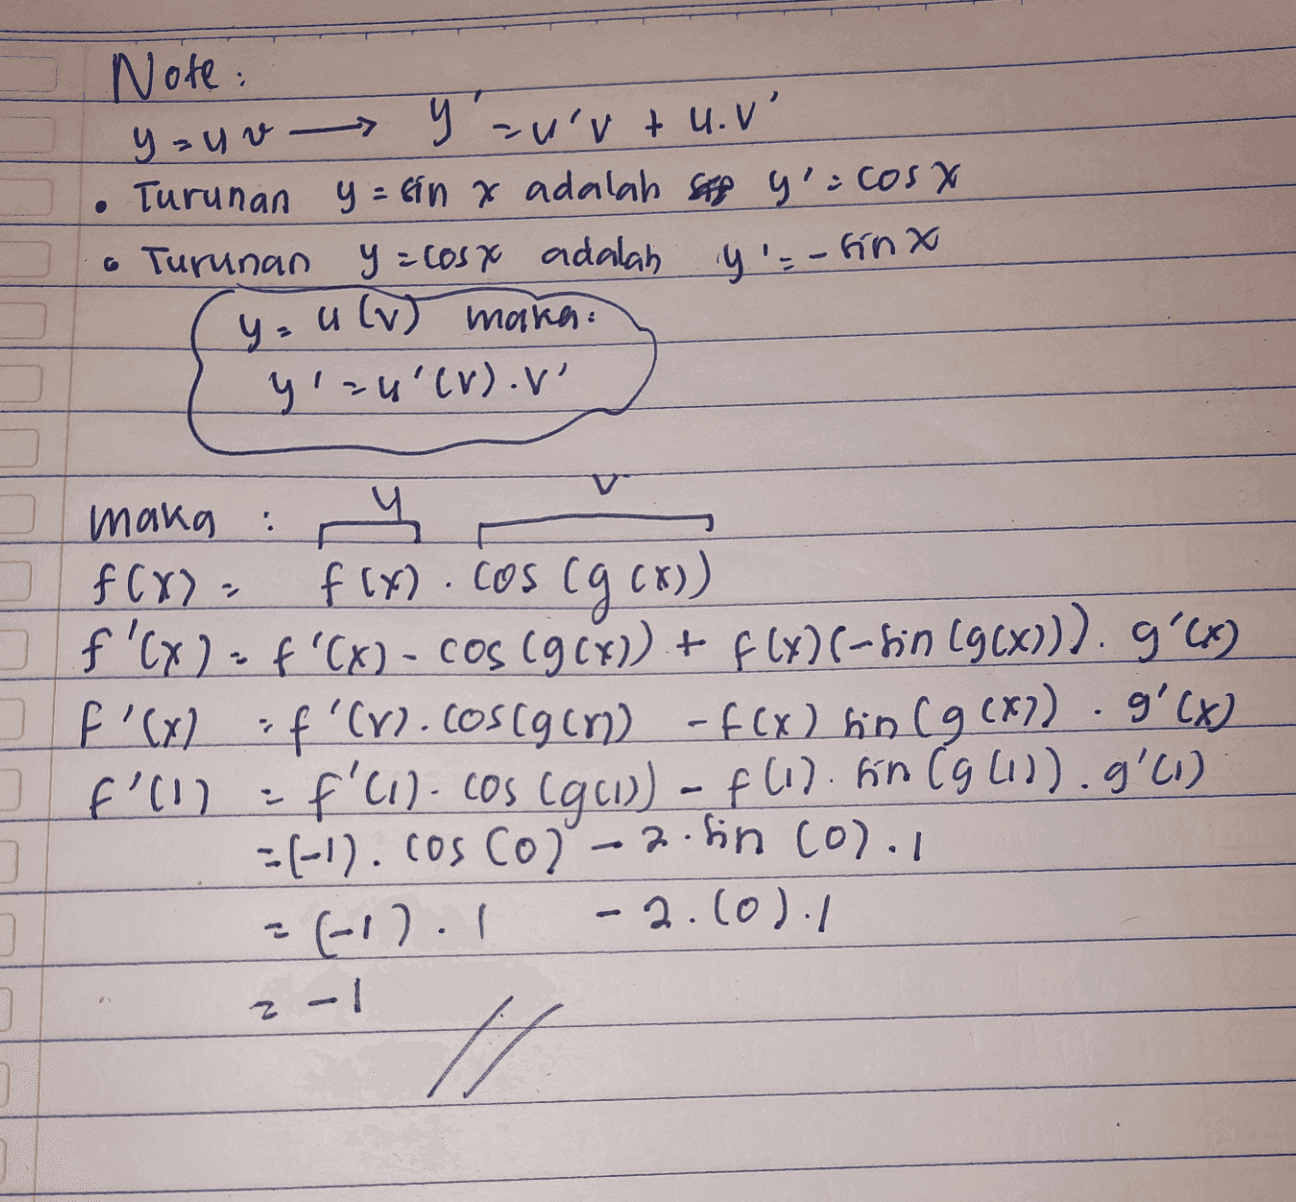 Note :
y = u v → y' = u'v + u.v'
• Turunan y = sin x adalah y' = cos x
• Turunan y = cos x adalah y' = - sin x
y = u (v) maka :
y' = u'(v).v'
u v
maka :
f(x) = f(x) . cos (g(x))
f'(x) = f'(x) - cos (g(x)) + f(x)(-sin (g(x))). g'(x)
f'(x) = f'(x). cos(g(x)) - f(x) sin (g(x)) . g'(x)
f'(1) = f'(1). cos (g(1)) - f(1). sin (g(1)). g'(1)
= (-1). cos (0) - 2. sin (0).1
= (-1) . 1 - 2.(0).1
= -1